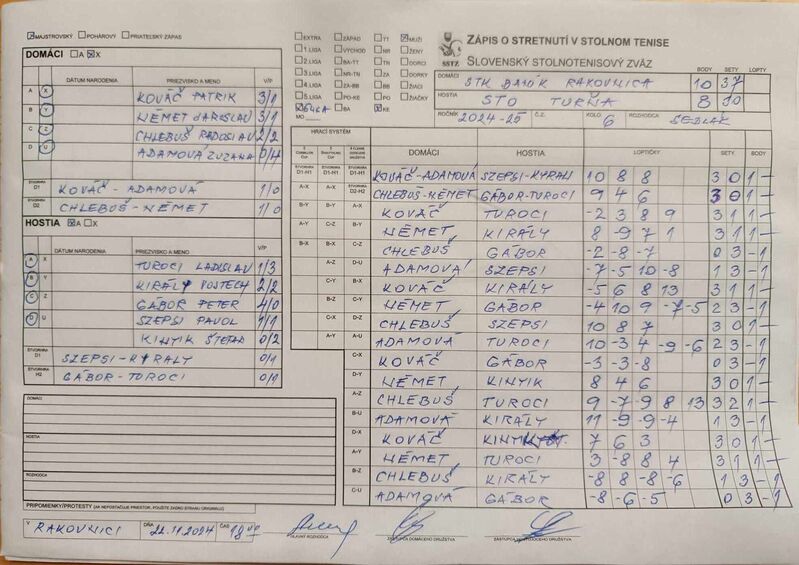 MAJSTROVSKÝ POHÁROVÝ PRIATEĽSKÝ ZÁPAS
DOMÁCI A X
DÁTUM NARODENIA PRIEZVISKO A MENO V/P
A X KOVÁČ PATRIK 3/1
B Y NÉMET JAROSLAV 3/1
C Z CHLEBUŠ RADOSLAV 2/2
D U ADAMOVÁ ZUZANA 0/4
ŠTVORHRA D1 KOVÁČ - ADAMOVÁ 1/0
ŠTVORHRA D2 CHLEBUŠ - NÉMET 1/0
HOSTIA A X
DÁTUM NARODENIA PRIEZVISKO A MENO V/P
A X TUROCI LADISLAV 1/3
B Y KIRÁLY VOJTECH 2/2
C Z GÁBOR PETER 4/0
D U SZEPSI PAVOL 1/1
KINYIK ŠTEFAN 0/2
ŠTVORHRA D1 SZEPSI - KIRÁLY 0/1
ŠTVORHRA H2 GÁBOR - TUROCI 0/1
DOMÁCI
HOSTIA
ROZHODCA
PRIPOMIENKY/PROTESTY (AK NEPOSTAČUJE PRIESTOR, POUŽITE ZADNÚ STRANU ORIGINÁLU)
EXTRA ZÁPAD TT MUŽI
1.LIGA VÝCHOD NR ŽENY
2.LIGA BA-TT TN DORCI
3.LIGA NR-TN ZA DORKY
4.LIGA ZA-BB BB ŽIACI
5.LIGA PO-KE PO ŽIAČKY
BA KE
MO
SSTZ
ZÁPIS O STRETNUTÍ V STOLNOM TENISE
SLOVENSKÝ STOLNOTENISOVÝ ZVÄZ
BODY SETY LOPTY
DOMÁCI STK BANÍK RAKOVNICA 10 37
HOSTIA STO TURŇA 8 30
ROČNÍK 2024-25 Č.Z. KOLO 6 ROZHODCA SEDLÁK
HRACÍ SYSTÉM
DOMÁCI HOSTIA LOPTIČKY SETY BODY
KOVÁČ-ADAMOVÁ SZEPSI-KYRÁLI 10 8 8 3 0 1 -
CHLEBUŠ-NÉMET GÁBOR-TUROCI 9 4 6 3 0 1 -
KOVÁČ TUROCI -2 3 8 9 3 1 1 -
NÉMET KIRÁLY 8 -9 7 1 3 1 1
CHLEBUŠ GÁBOR -2 -8 -7 0 3 - 1
ADAMOVÁ SZEPSI -7 -5 10 -8 1 3 - 1
KOVÁČ KIRÁLY -5 6 8 13 3 1 1 -
NÉMET GÁBOR -4 10 9 -7 -5 2 3 - 1
CHLEBUŠ SZEPSI 10 8 7 3 0 1
ADAMOVÁ TUROCI 10 -3 4 -9 -6 2 3 - 1
KOVÁČ GÁBOR -3 -3 -8 0 3 - 1
NÉMET KINYIK 8 4 6 3 0 1 -
CHLEBUŠ TUROCI 9 -7 -9 8 13 3 2 1 -
ADAMOVÁ KIRÁLY 11 -9 -9 -4 1 3 - 1
KOVÁČ 7 6 3 3 0 1 -
NÉMET TUROCI 3 -8 8 4 3 1 1 -
CHLEBUŠ KIRÁLY -8 8 -8 -6 1 3 - 1
ADAMOVÁ GÁBOR -8 -6 -5 0 3 - 1
V RAKOVNICI DŇA 22.11.2024 ČAS 18
HLAVNÝ ROZHODCA ZÁSTUPCA DOMÁCEHO DRUŽSTVA ZÁSTUPCA HOSŤUJÚCEHO DRUŽSTVA